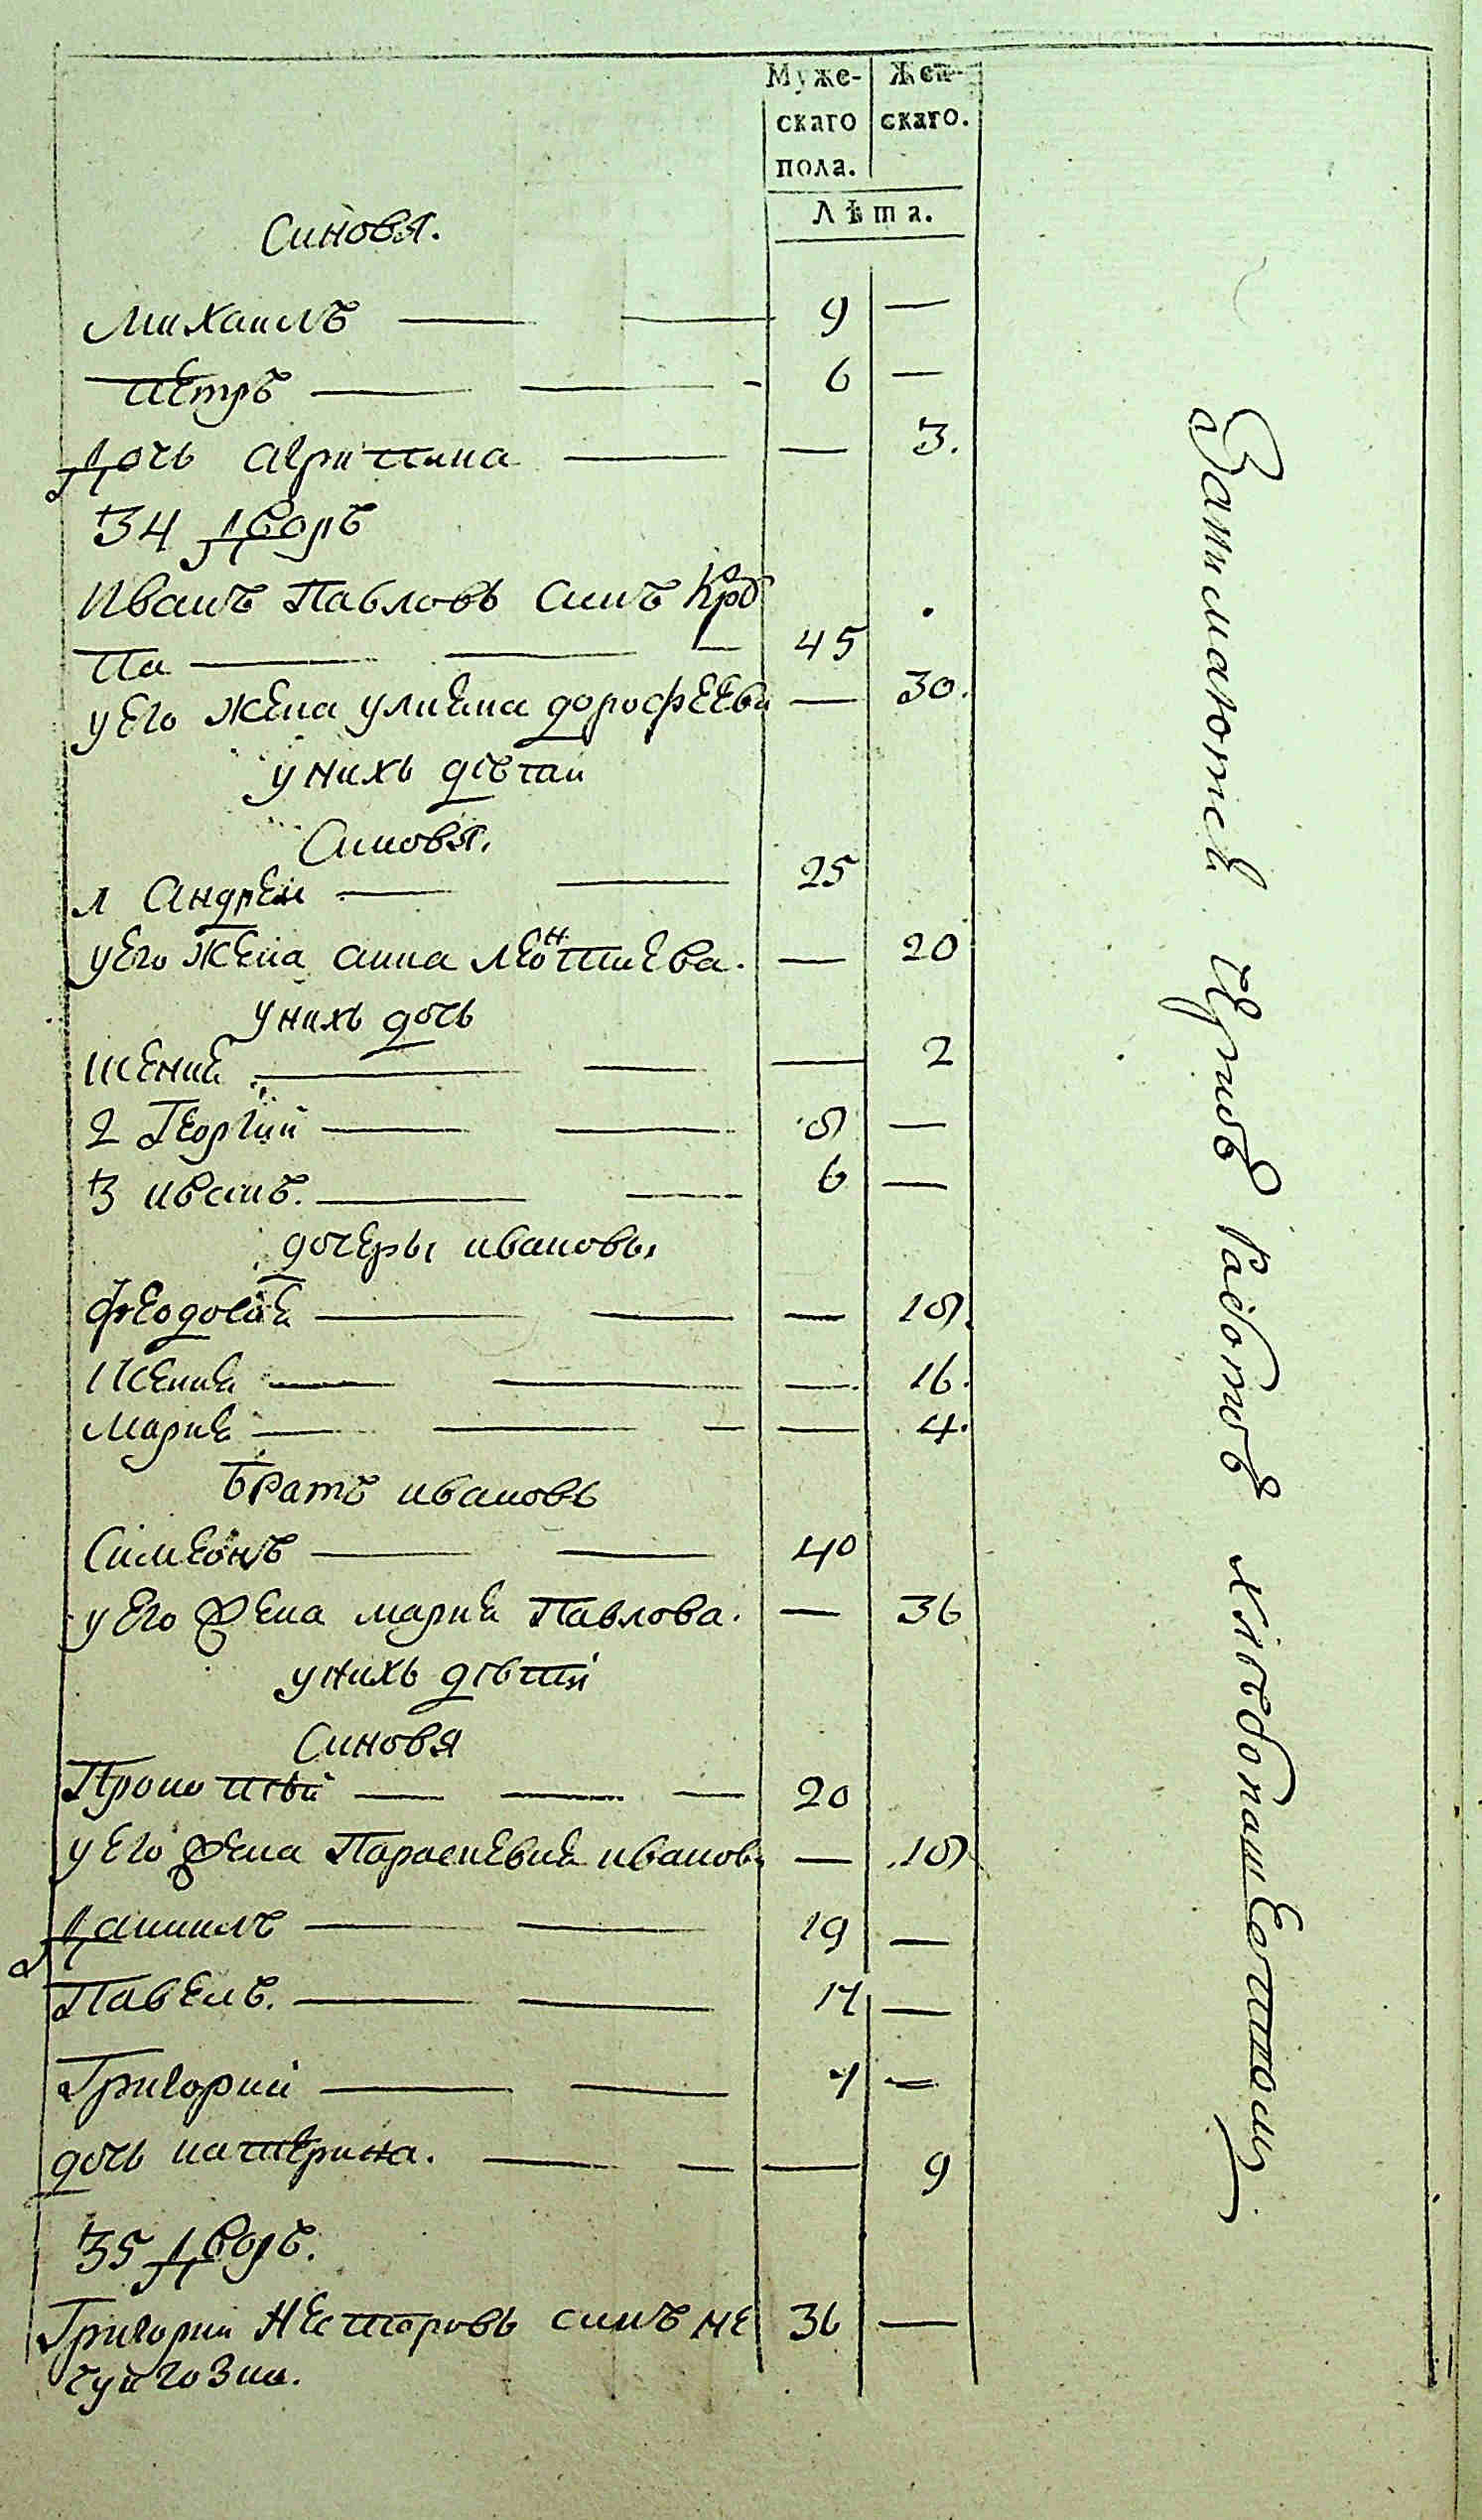 Муже- Жен-
скаго скаго.
пола.
Лѣта.
Синовя.
Михаилъ — — 9 —
Петръ — — - 6 —
Дочь агрипина — — 3.
34 Дворъ
Иванъ Павловъ синъ Крб
па — — — 45
у его жена улиена дорофеева — 30.
у нихъ дѣтаи
Синовя.
1 Андреи — — 25
у его жена анна леонтиева. — 20
у нихъ дочь
ксение — — — 2
2 Георгии — — 8 —
3 иванъ. — — 6 —
дочеры ивановы
феодосие — — — 18.
Ксение — — — 16.
Марие — — — — 4.
Братъ ивановъ
Симеонъ — — 40
у его жена марие Павлова. — 36
у нихъ дѣтии
Синовя
Прокопѣи — — — 20
у его жена Параскевие иванов. — 18
Даниилъ — — 19 —
Павелъ. — — 14 —
Григории — — 4 —
дочь катерина. — — — 9
35 Дворъ.
Григории Несторовъ синъ не 36 —
Занимаютсе Купно работою хлѣбопашественною